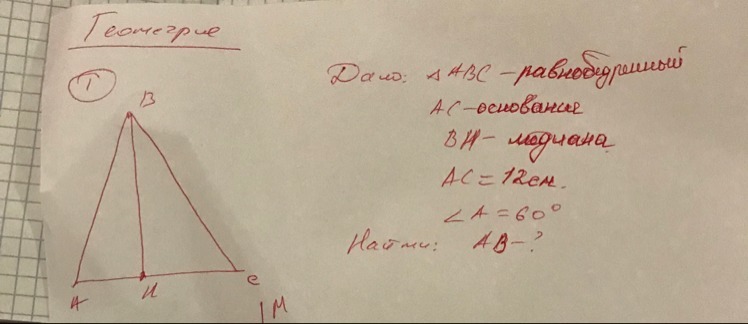 Геометрия
1
B
A
H
C
M
Дано: △ABC - равнобедренный
AC - основание
BH - медиана
AC = 12 см.
∠A = 60°
Найти: AB - ?